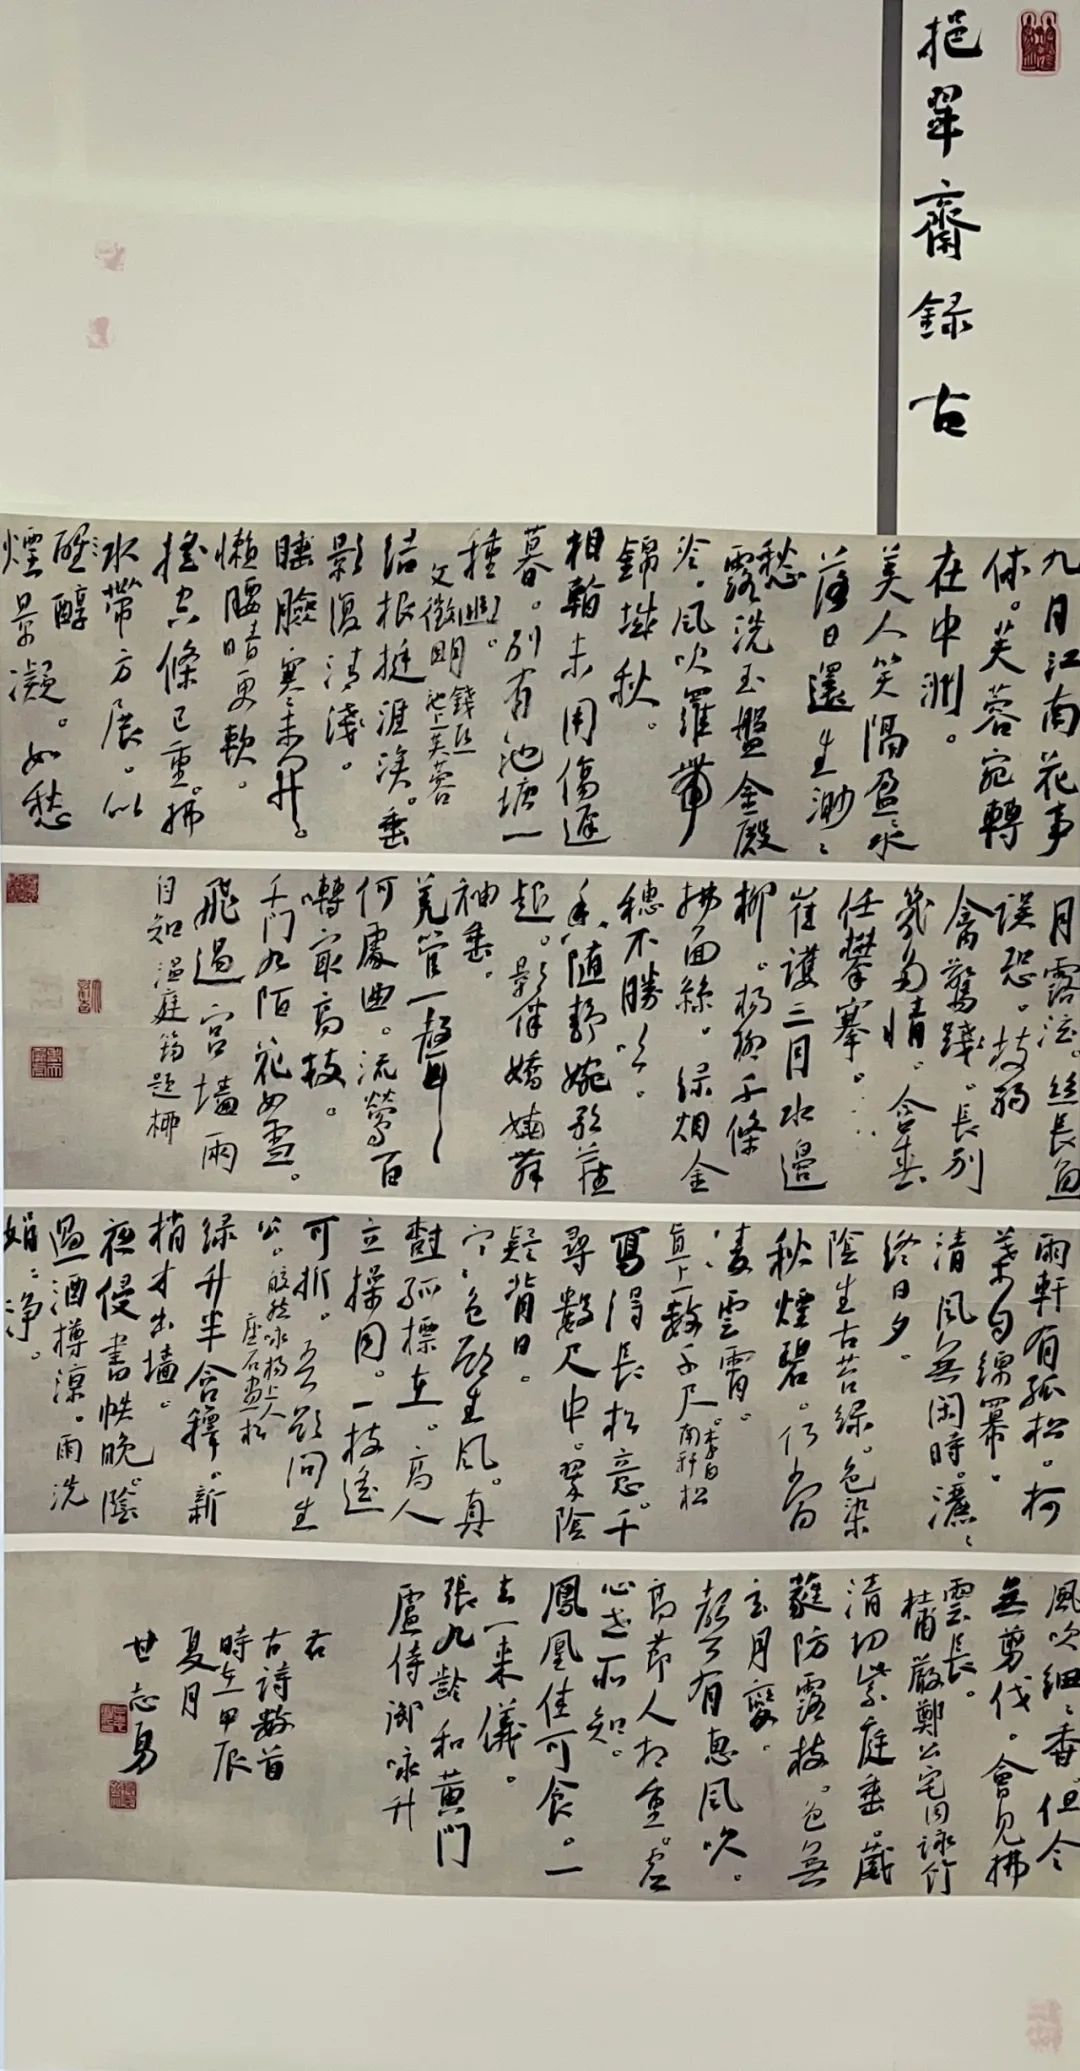 挹翠斋録古
九月江南花事
休。芙蓉宛轉
在中洲。
美人笑隔盈盈水
落日還生渺渺
愁
露洗玉盤金殿
冷。風吹羅帶
錦城秋。
相看未用傷遲
暮。別有池塘一
種幽。
文徵明 錢氏
池上芙蓉
結根挺涯涘。垂
影復清淺。
睡臉寒未開。
懶腰晴更軟。
搖空條已重。拂
水帶方展。似
醉
煙景凝。如愁
月露泫。絲長魚
誤恐。枝弱
禽驚踐。長別
幾多情。含春
任攀搴。
崔護三月水邊
柳。楊柳千條
拂面絲。綠烟金
穗不勝吹。
香隨靜婉歌塵
起。影伴嬌嬈舞
袖垂。
羌管一聲
何處曲。流鶯百
囀最高枝。
千門九陌花如雪。
飛過宮墻兩
自知 溫庭筠題柳
南軒有孤松。柯
葉自綿冪。
清風無閑時。瀟灑
終日夕。
陰生古苔綠。色染
秋煙碧。何當
凌雲霄。
直上數千尺。李白
南軒松
寫得長松意。千
尋數尺中。翠陰
疑背日。
寒色欲生風。真
樹孤標在。高人
立操同。一枝遙
可折。吾欲問生
公。皎然詠楊上人
座右畫松
綠竹半含籜。新
梢才出墻。
色侵書帙晚。陰
過酒樽涼。雨洗
娟娟淨。
風吹細細香。但令
無剪伐。會見拂
雲長。
杜甫嚴鄭公宅同詠竹
清切紫庭垂。葳
蕤防露枝。色無
玄月變。
聲有惠風吹。
高節人相重。虛
心世所知。
鳳凰佳可食。一
去一来儀。
張九齡和黃門
盧侍御咏竹
右
古詩數首
時在甲辰
夏月
世志勇